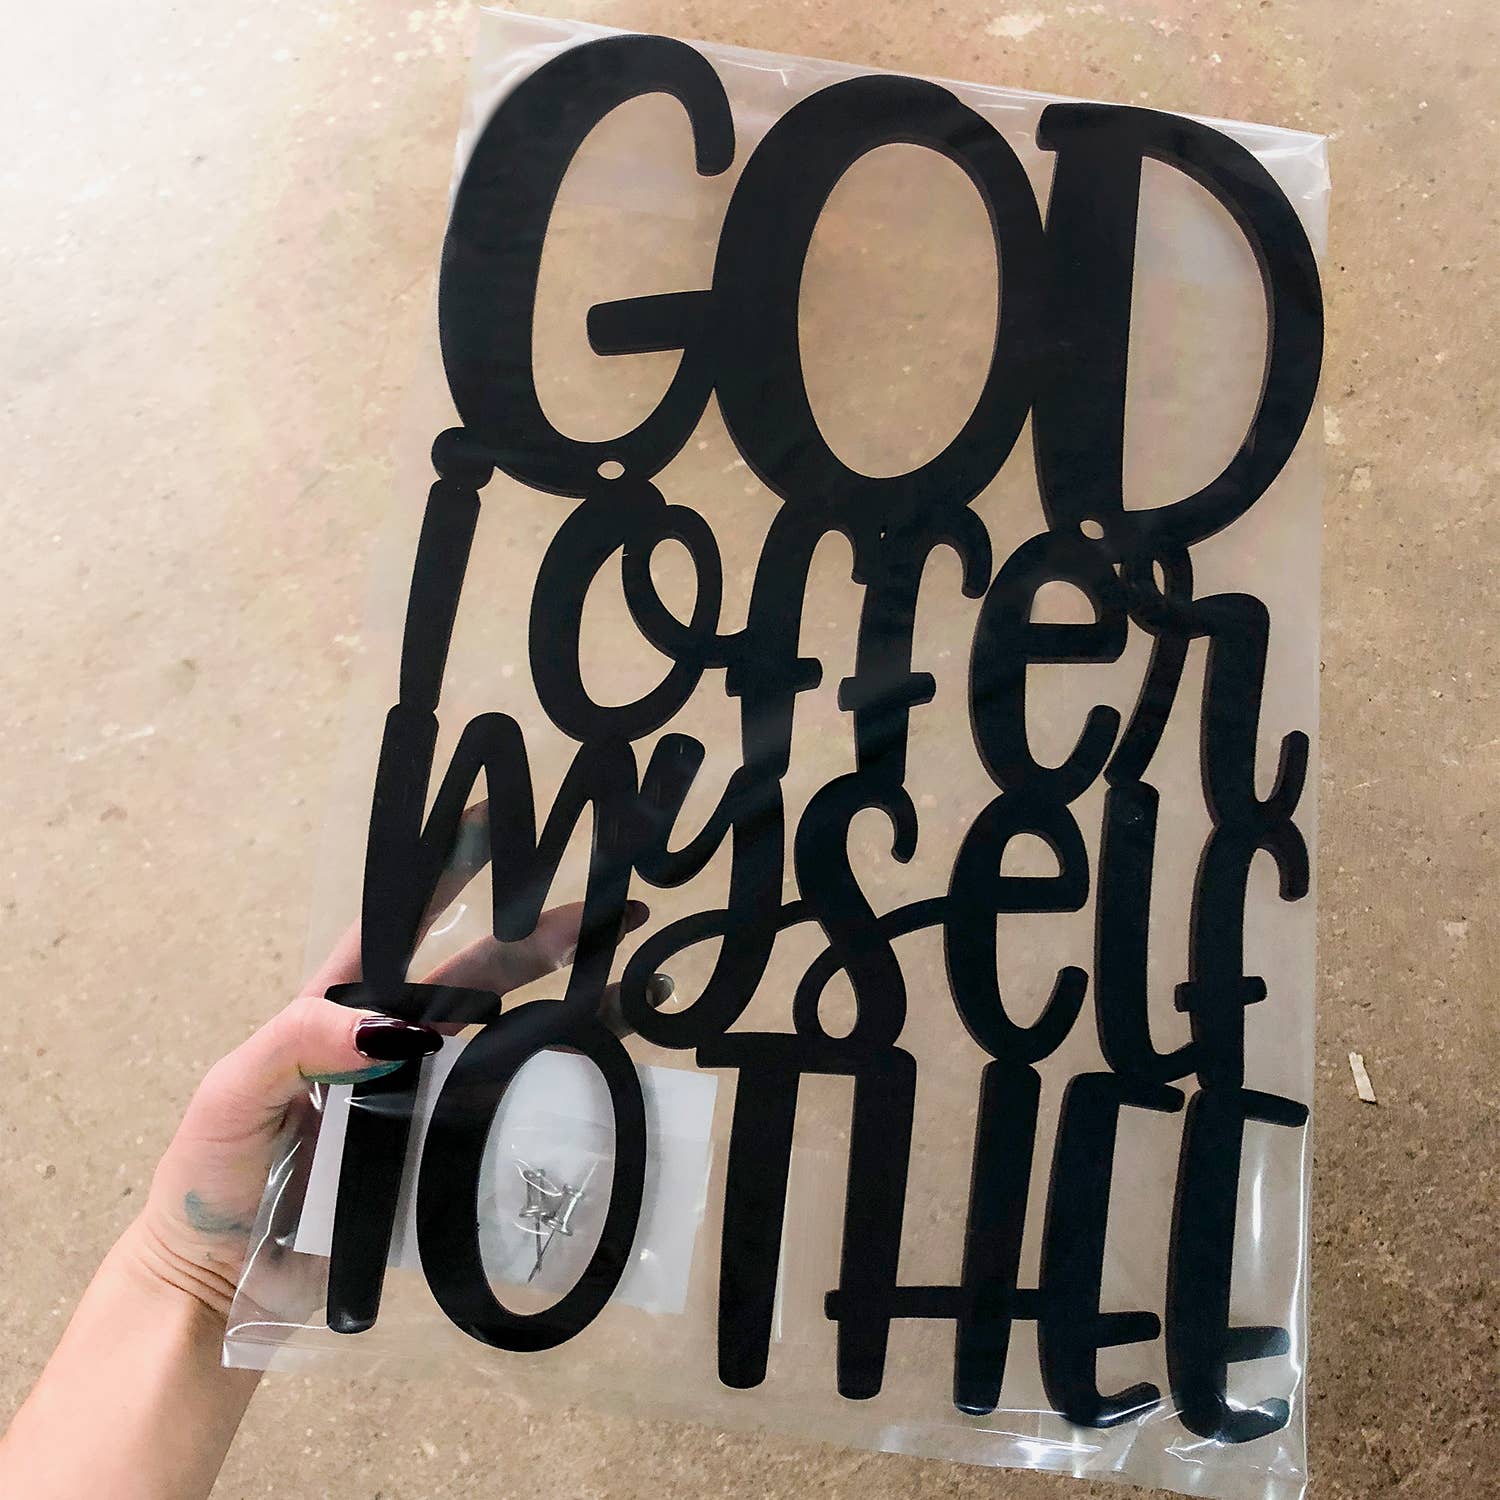 GOD
I offer
myself
TO THEE